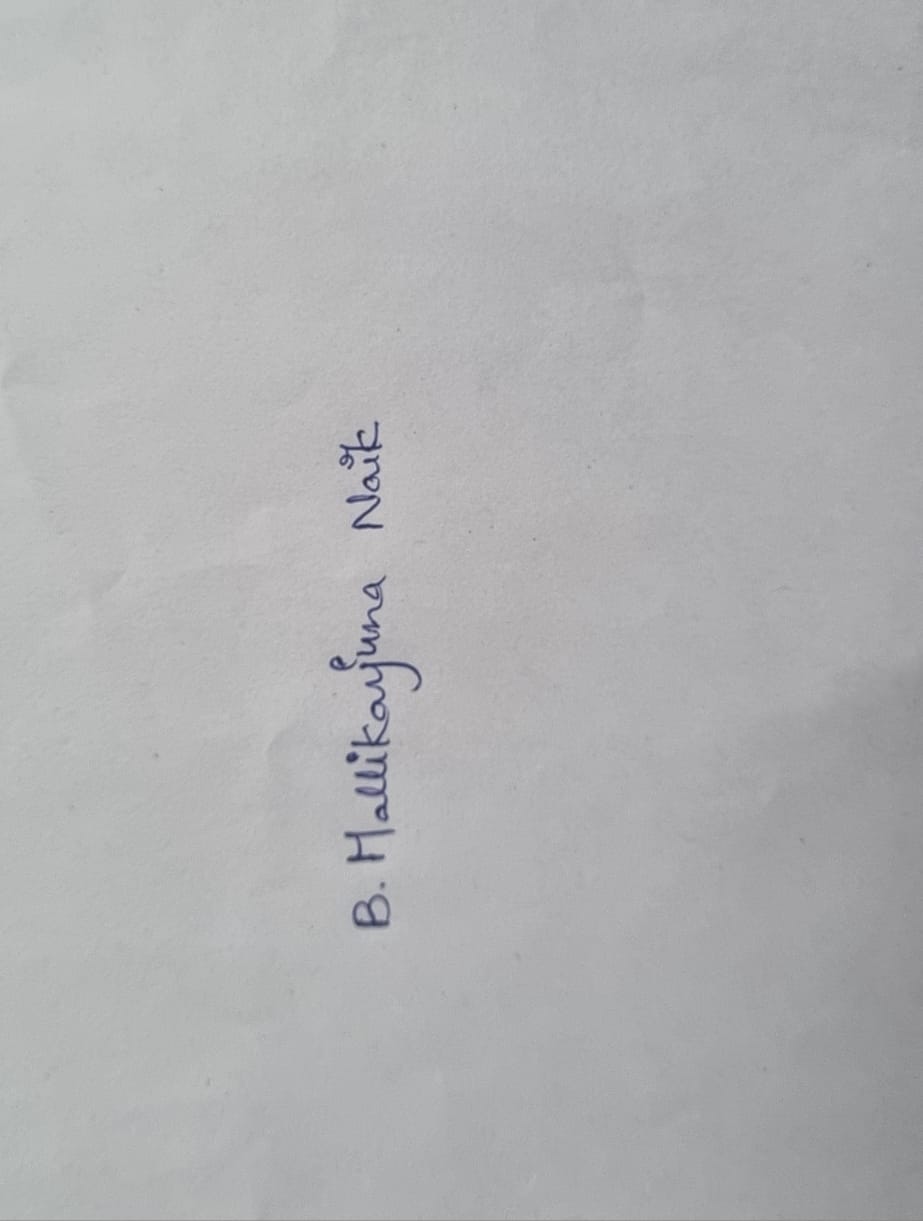 B. Mallikarjuna Naik